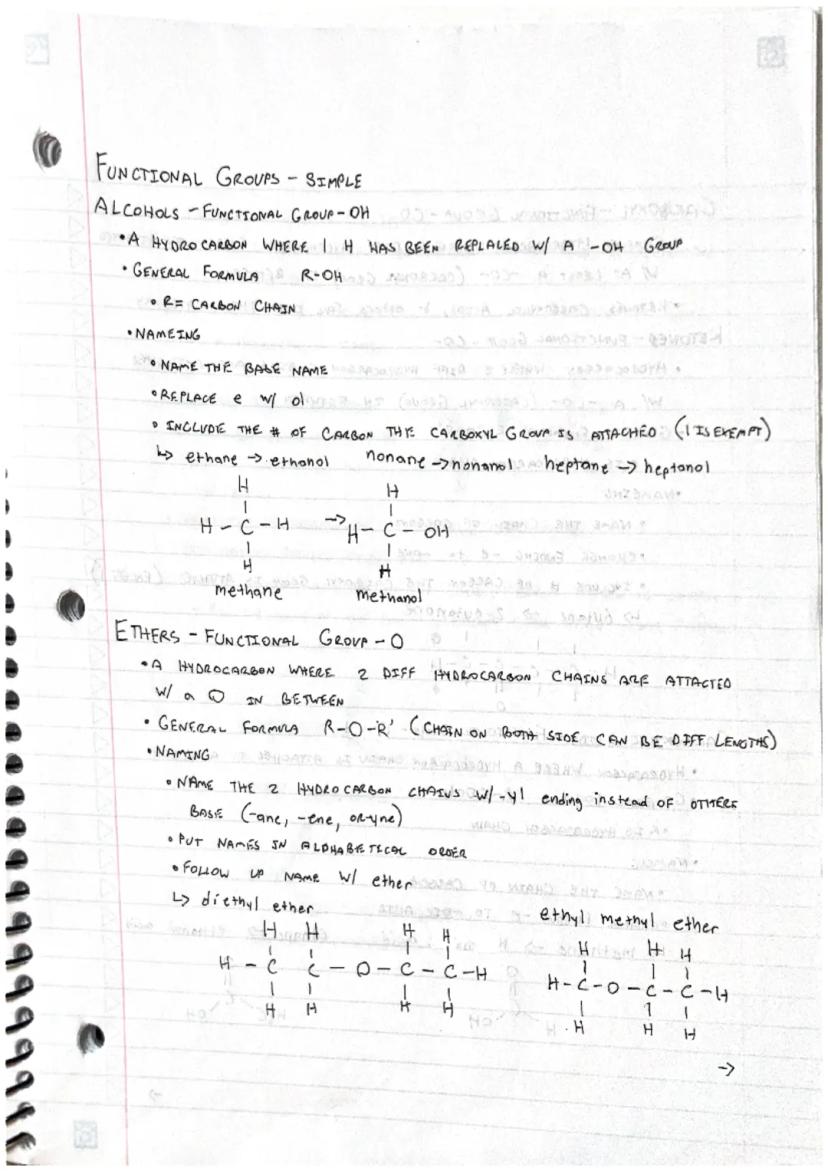 FUNCTIONAL GROUPS - SIMPLE
ALCOHOLS - FUNCTIONAL GROUP - OH
• A HYDROCARBON WHERE 1 H HAS BEEN REPLALED W/ A -OH GROUP
• GENERAL FORMULA R-OH
• R = CARBON CHAIN
• NAMEING
• NAME THE BASE NAME
• REPLACE e W/ ol
• INCLUDE THE # OF CARBON THE CARBOXYL GROUP IS ATTACHED (1 IS EXEMPT)
↳ ethane → ethanol nonane → nonanol heptane → heptanol
H H
| |
H - C - H → H - C - OH
| |
H H
methane methanol
ETHERS - FUNCTIONAL GROUP - O
• A HYDROCARBON WHERE 2 DIFF HYDROCARBON CHAINS ARE ATTACTED
W/ a O IN BETWEEN
• GENERAL FORMULA R-O-R' (CHAIN ON BOTH SIDE CAN BE DIFF LENGTHS)
• NAMING
• NAME THE 2 HYDROCARBON CHAINS W/ -yl ending instead of OTHERS
BASE (-ane, -ene, or -yne)
• PUT NAMES IN ALPHABETICAL ORDER
• FOLLOW UP NAME W/ ether
↳ diethyl ether ethyl methyl ether
H H H H H H H
| | | | | | |
H - C C - O - C - C - H H - C - O - C - C - H
| | | | | | |
H H H H H H H
→